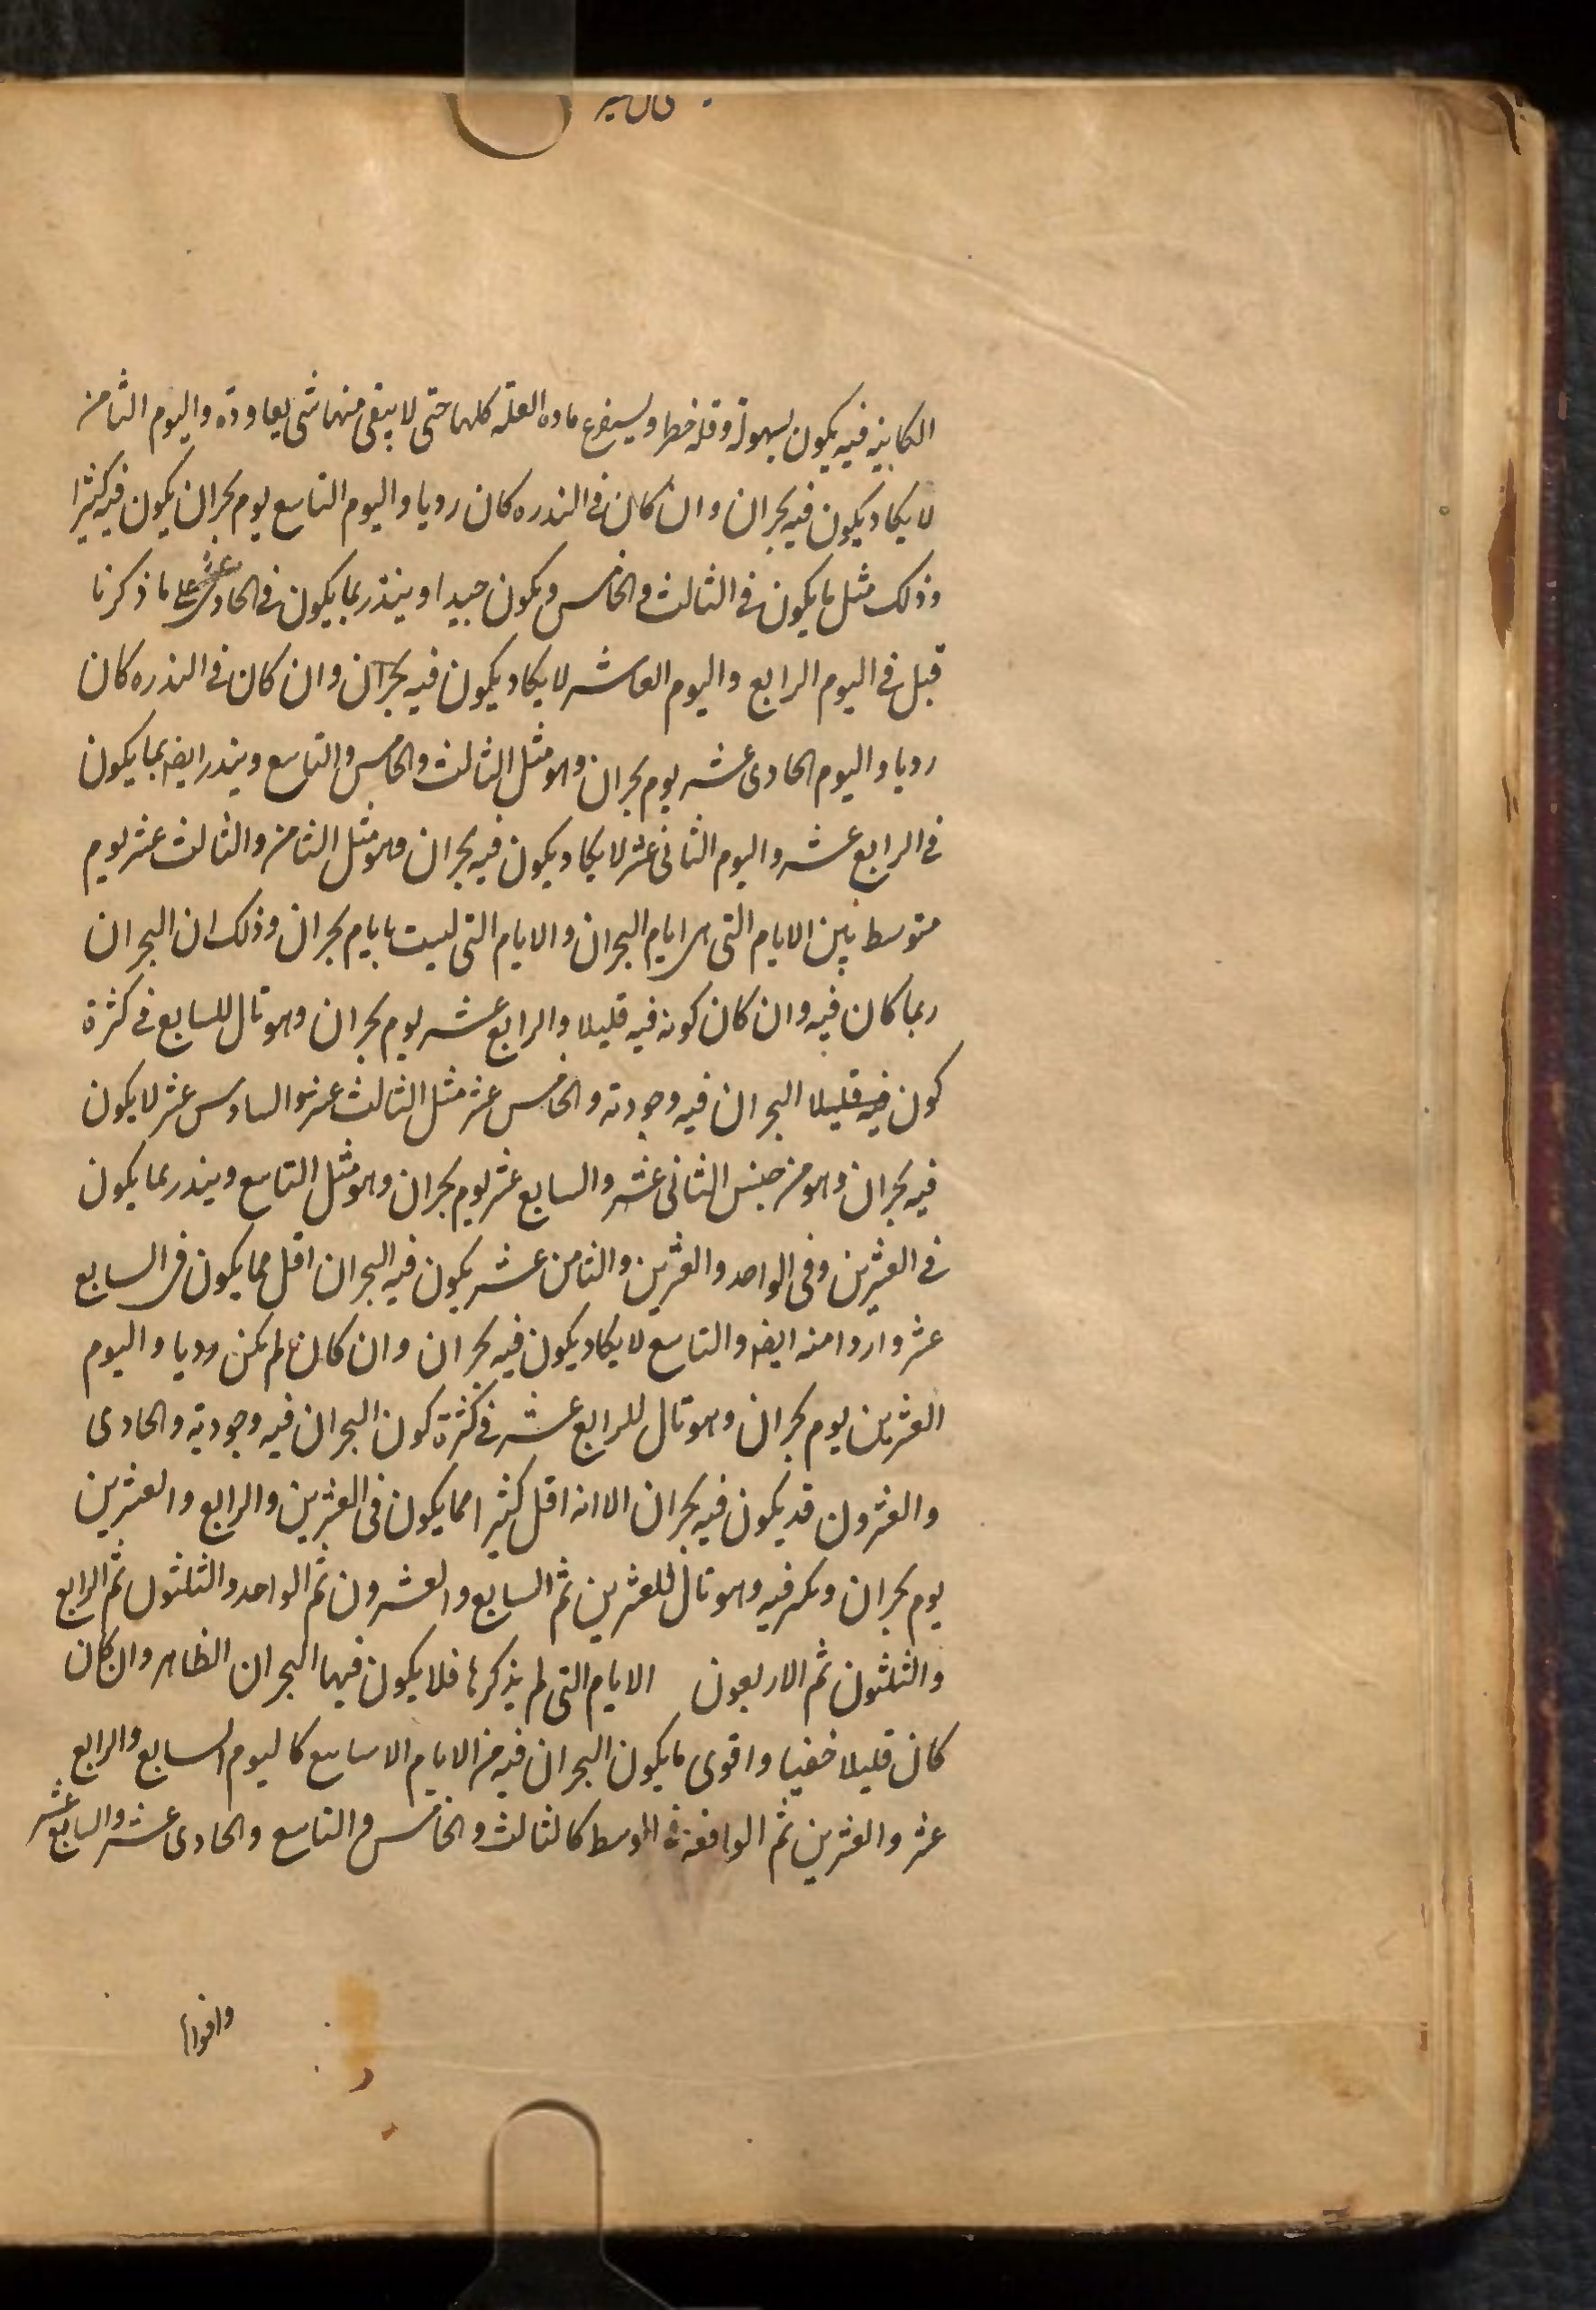 الكاينه فيه يكون بسهولة وقله خطر ويستفرغ ماده العله كلها حتى لا يبقى منها شى يعاوده واليوم الثامن
لا يكاد يكون فيه بحران وان كان فى الندره كان رديا واليوم التاسع يوم بحران يكون فيه كثيرا
وذلك مثل ما يكون فى الثالث والخامس ويكون جيدا وينذر بما يكون فى الحادى عشر على ما ذكرنا
قبل فى اليوم الرابع واليوم العاشر لا يكاد يكون فيه بحران وان كان فى الندره كان
رديا واليوم الحادى عشر يوم بحران وهو مثل الثالث والخامس والتاسع وينذر ايضه بما يكون
فى الرابع عشر واليوم الثانى عشر لا يكاد يكون فيه بحران وهو مثل الثامن والثالث عشر يوم
متوسط بين الايام التى هى ايام البحران والايام التى ليست بايام بحران وذلك ان البحران
ربما كان فيه وان كان كونه فيه قليلا والرابع عشر يوم بحران وهو تال للسابع فى كثرة
كون فيه قليلا البحران فيه وجودته والخامس عشر مثل الثالث عشر والسادس عشر لا يكون
فيه بحران وهو من جنس الثانى عشر والسابع عشر يوم بحران وهو مثل التاسع وينذر بما يكون
فى العشرين وفى الواحد والعشرين والثامن عشر يكون فيه البحران اقل مما يكون فى السابع
عشر واردا منه ايضه والتاسع لا يكاد يكون فيه بحران وان كان لم يكن رديا واليوم
العشرين يوم بحران وهو تال للرابع عشر فى كثرة كون البحران فيه وجودته والحادى
والعشرون قد يكون فيه بحران الا انه اقل كثيرا مما يكون فى العشرين والرابع والعشرين
يوم بحران ويكثر فيه وهو تال للعشرين ثم السابع والعشرون ثم الواحد والثلثون ثم الرابع
والثلثون ثم الاربعون الايام التى لم يذكرها فلا يكون فيها البحران الظاهر وان كان
كان قليلا خفيا واقوى ما يكون البحران فيه من الايام الاسابيع كاليوم السابع والرابع
عشر والعشرين ثم الواقعة فى الوسط كالثالث والخامس والتاسع والحادى عشر والسابع عشر
واقواها